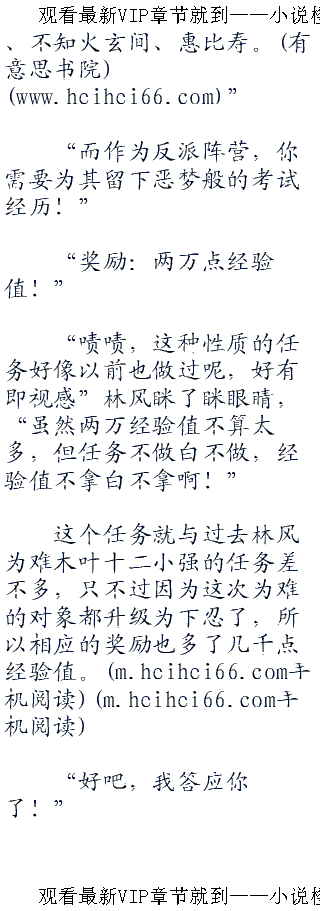 观看最新VIP章节就到——小说
、不知火玄间、惠比寿。(有
意思书院)
(www.hcihci66.com)”
“而作为反派阵营，你
需要为其留下恶梦般的考试
经历！”
“奖励：两万点经验
值！”
“啧啧，这种性质的任
务好像以前也做过呢，好有
即视感”林风眯了眯眼睛，
“虽然两万经验值不算太
多，但任务不做白不做，经
验值不拿白不拿啊！”
这个任务就与过去林风
为难木叶十二小强的任务差
不多，只不过因为这次为难
的对象都升级为下忍了，所
以相应的奖励也多了几千点
经验值。(m.hcihci66.com手
机阅读)(m.hcihci66.com手
机阅读)
“好吧，我答应你
了！”
观看最新VIP章节就到——小说